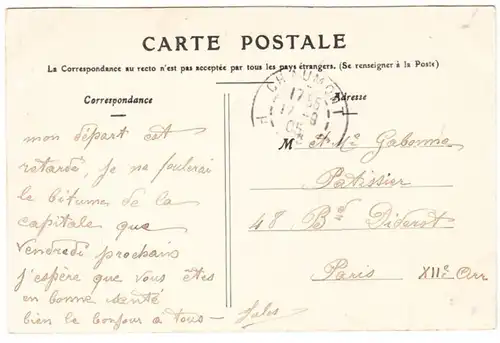 CARTE POSTALE
La Correspondance au recto n'est pas acceptée par tous les pays étrangers. (Se renseigner à la Poste)
Correspondance
mon départ est
retardé, je ne foulerai
le bitume de la
capitale que
Vendredi prochain
j'espère que vous êtes
en bonne santé
bien le bonjour à tous —
Jules
CHAUMONT
H
Adresse
M. et Me Gabonne
Patissier
48 Bd Diderot
Paris XIIe Arr